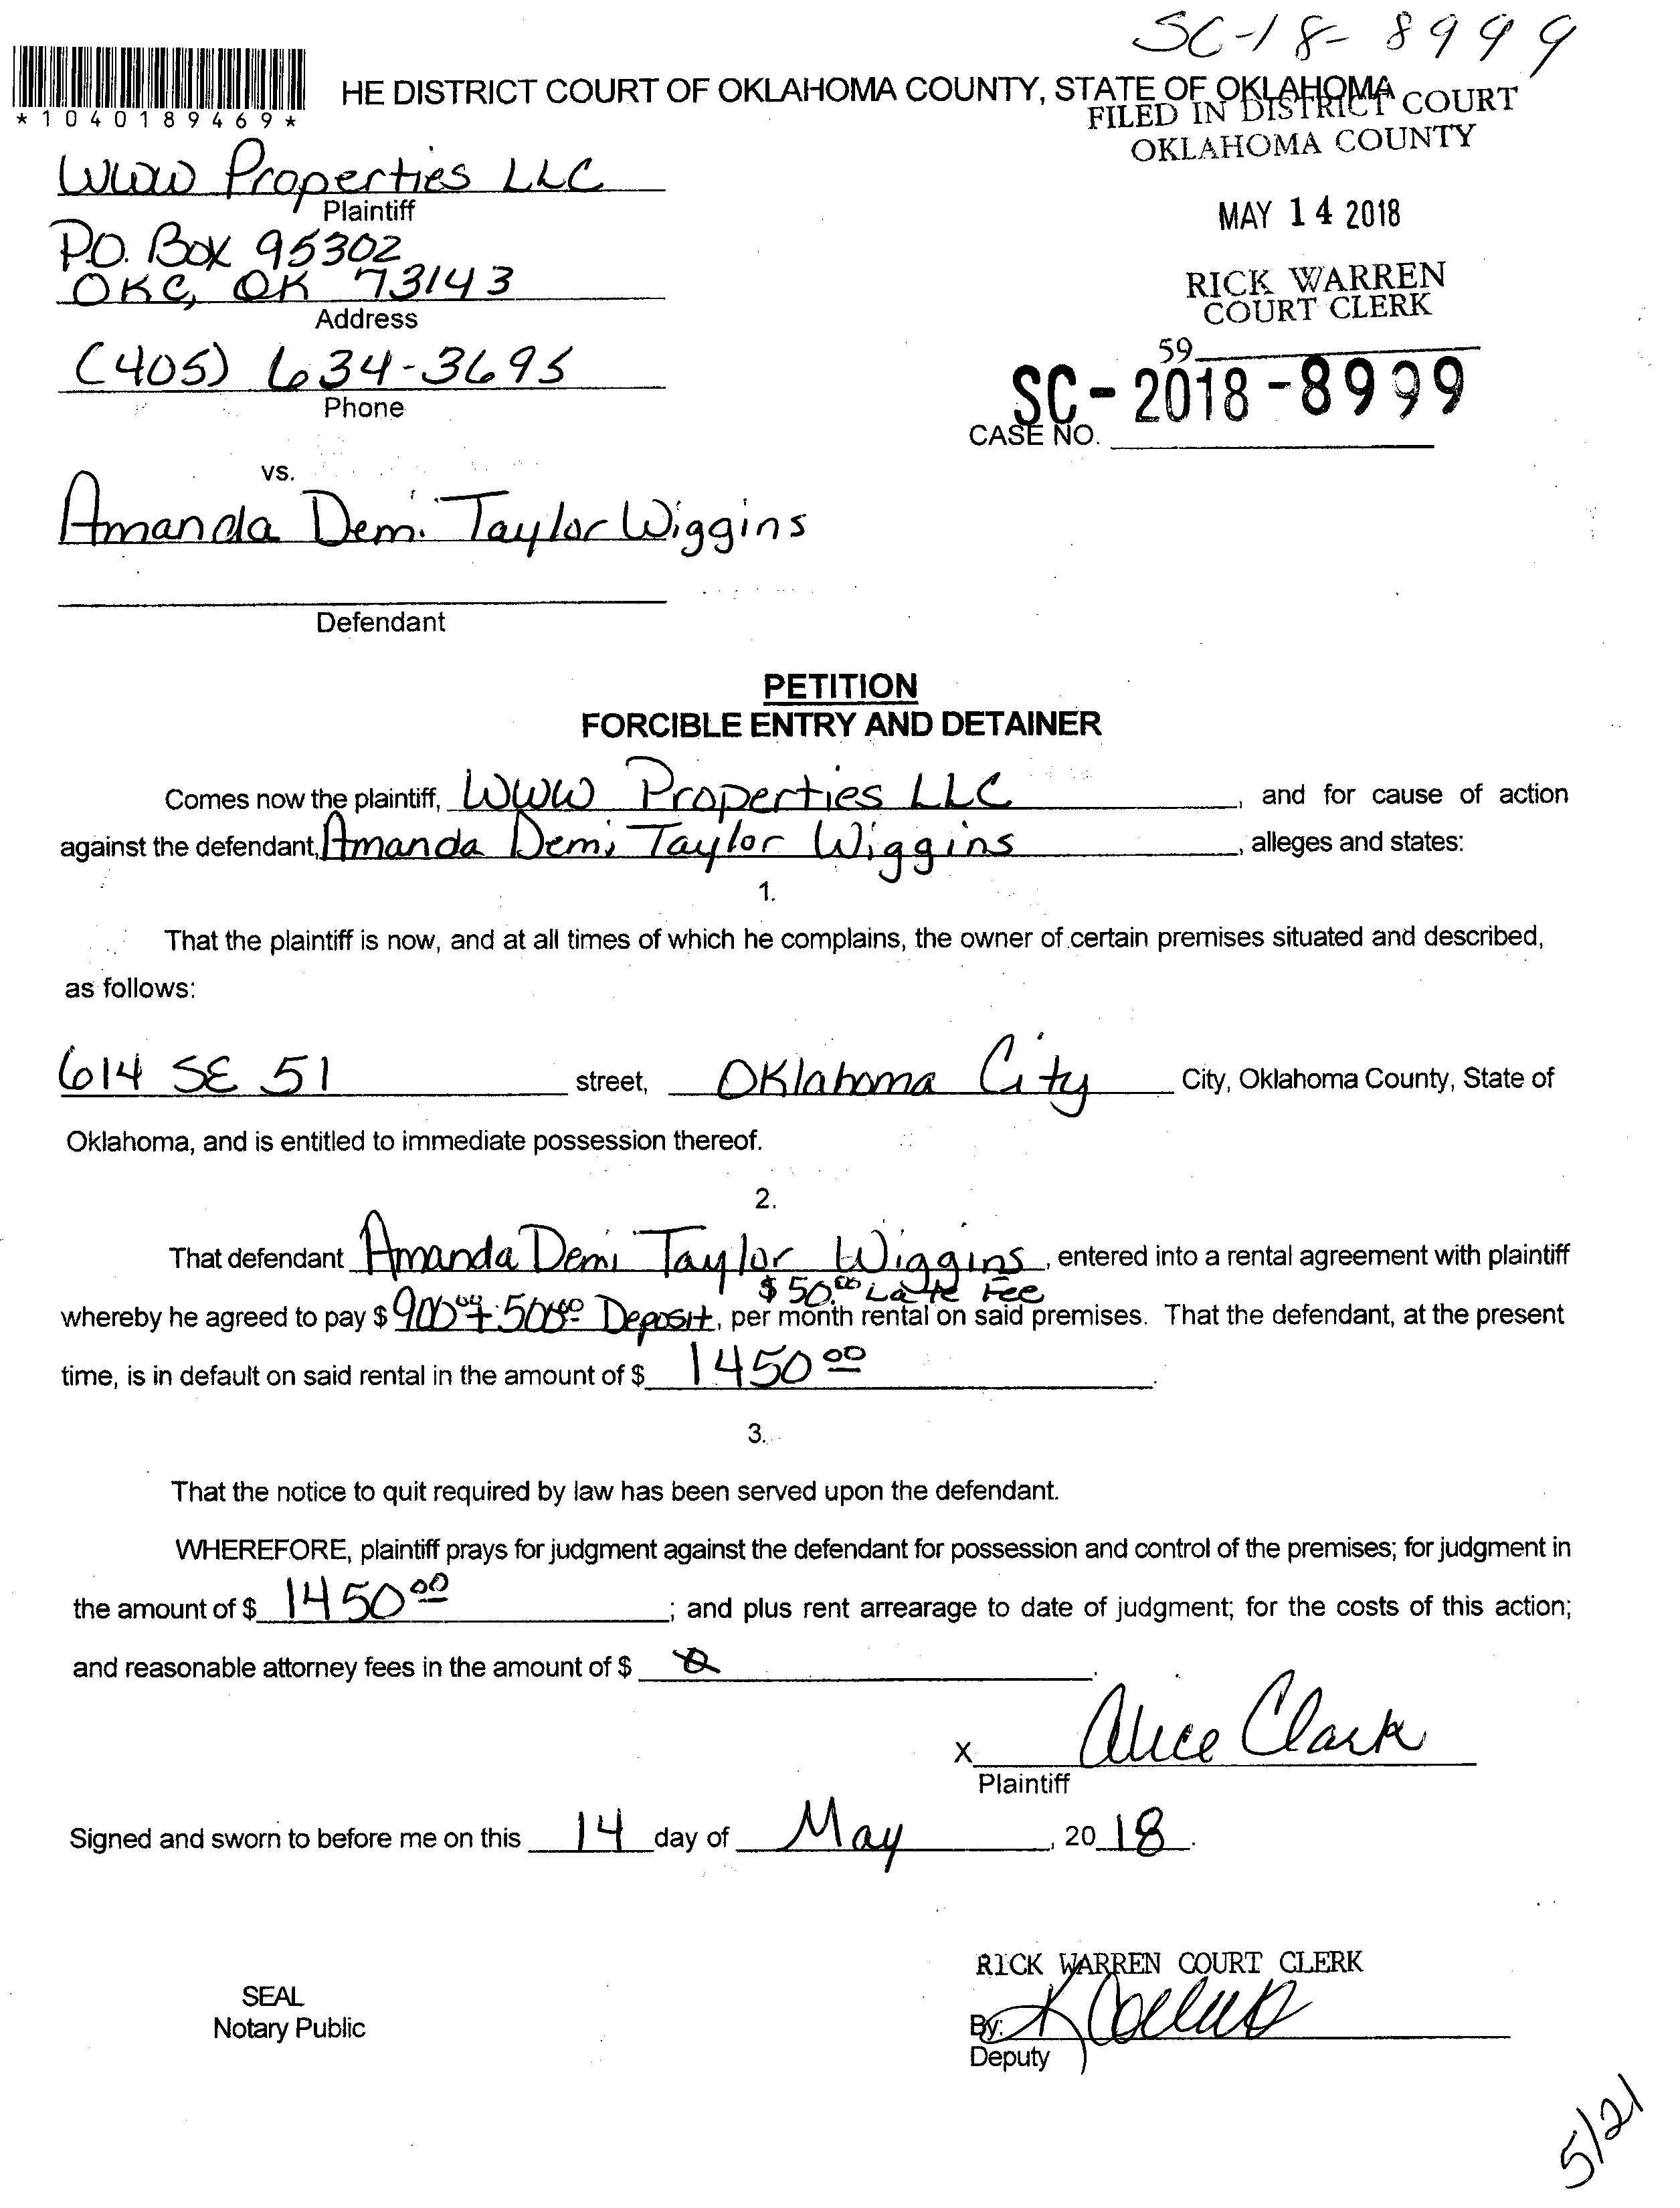 SC-18-8999
*1040189469*
HE DISTRICT COURT OF OKLAHOMA COUNTY, STATE OF OKLAHOMA
FILED IN DISTRICT COURT
OKLAHOMA COUNTY
WWW Properties LLC
Plaintiff
MAY 14 2018
P.O. Box 95302
OKC, OK 73143
Address
RICK WARREN
COURT CLERK
(405) 634-3695
Phone
59
SC-2018-8999
CASE NO.
vs.
Amanda Demi Taylor Wiggins
Defendant
PETITION
FORCIBLE ENTRY AND DETAINER
Comes now the plaintiff, WWW Properties LLC, and for cause of action
against the defendant, Amanda Demi Taylor Wiggins, alleges and states:
1.
That the plaintiff is now, and at all times of which he complains, the owner of certain premises situated and described,
as follows:
614 SE 51 street, Oklahoma City City, Oklahoma County, State of
Oklahoma, and is entitled to immediate possession thereof.
2.
That defendant Amanda Demi Taylor Wiggins, entered into a rental agreement with plaintiff
$50.00 Late Fee
whereby he agreed to pay $ 900.00 + 500.00 Deposit, per month rental on said premises. That the defendant, at the present
time, is in default on said rental in the amount of $ 1450 00.
3.
That the notice to quit required by law has been served upon the defendant.
WHEREFORE, plaintiff prays for judgment against the defendant for possession and control of the premises; for judgment in
the amount of $ 1450 00; and plus rent arrearage to date of judgment; for the costs of this action;
and reasonable attorney fees in the amount of $ 0.
x Alice Clark
Plaintiff
Signed and sworn to before me on this 14 day of May, 2018.
RICK WARREN COURT CLERK
SEAL
Notary Public
By:
Deputy
5/21